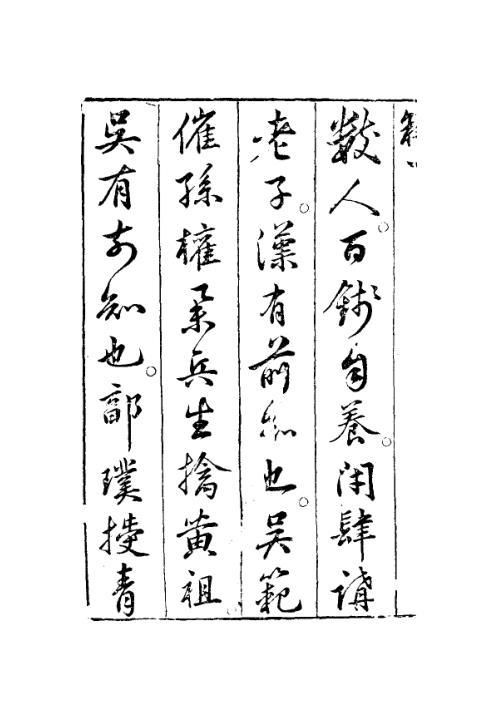 數人。百錢自養。閉肆講
老子。漢有前知也。吳範
催孫權舉兵生擒黃祖。
吳有前知也。郭璞授青